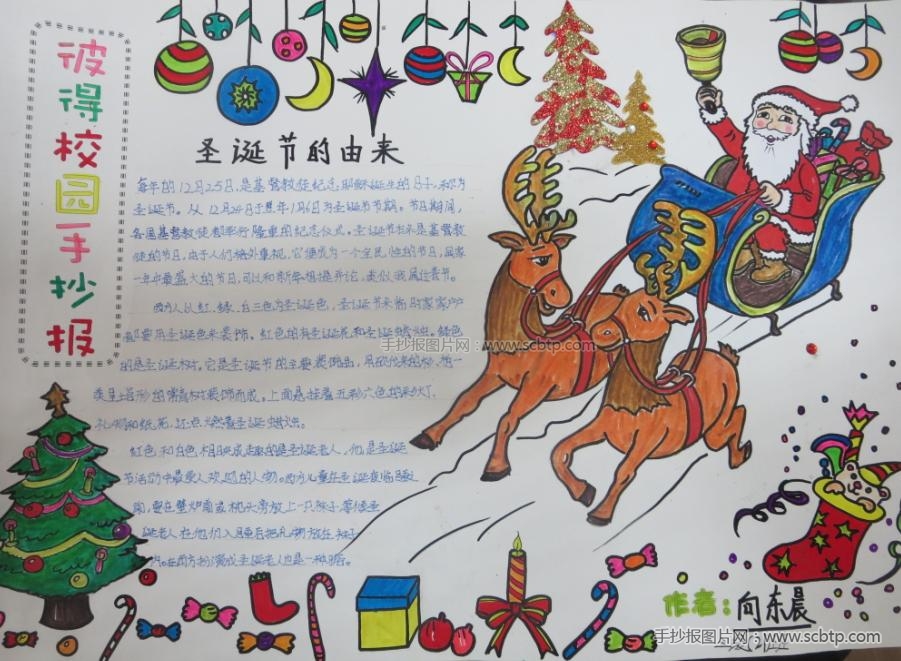 彼得校园手抄报
圣诞节的由来
每年的12月25日,是基督教徒纪念耶稣诞生的日子,称为
圣诞节。从12月24日于翌年1月6日为圣诞节节期。节日期间,
各国基督教徒都举行隆重的纪念仪式。圣诞节本来是基督教
徒的节日,由于人们格外重视,它便成为一个全民性的节日,国家
一年中最盛大的节日,可以和新年相提并论,类似我国过春节。
西方人以红、绿、白三色为圣诞色,圣诞节来临时家家户户
都要用圣诞色来装饰。红色的有圣诞花和圣诞蜡烛。绿色
的是圣诞树。它是圣诞节的主要装饰品,用砍伐来的杉、柏一
类呈塔形的常青树装饰而成。上面悬挂着五彩六色的彩灯、
礼物和纸花,还点燃着圣诞蜡烛。
红色和白色相映成趣的是圣诞老人,他是圣诞
节活动中最受人欢迎的人物。西方儿童在圣诞夜临睡
前,要在壁炉前或枕头旁放上一只袜子,等候圣
诞老人在他们入睡后把礼物放在袜子
内。在西方扮演成圣诞老人也是一种
手抄报图片网:www.scbtp.com
作者:向东晨
手抄报图片网:www.scbtp.com